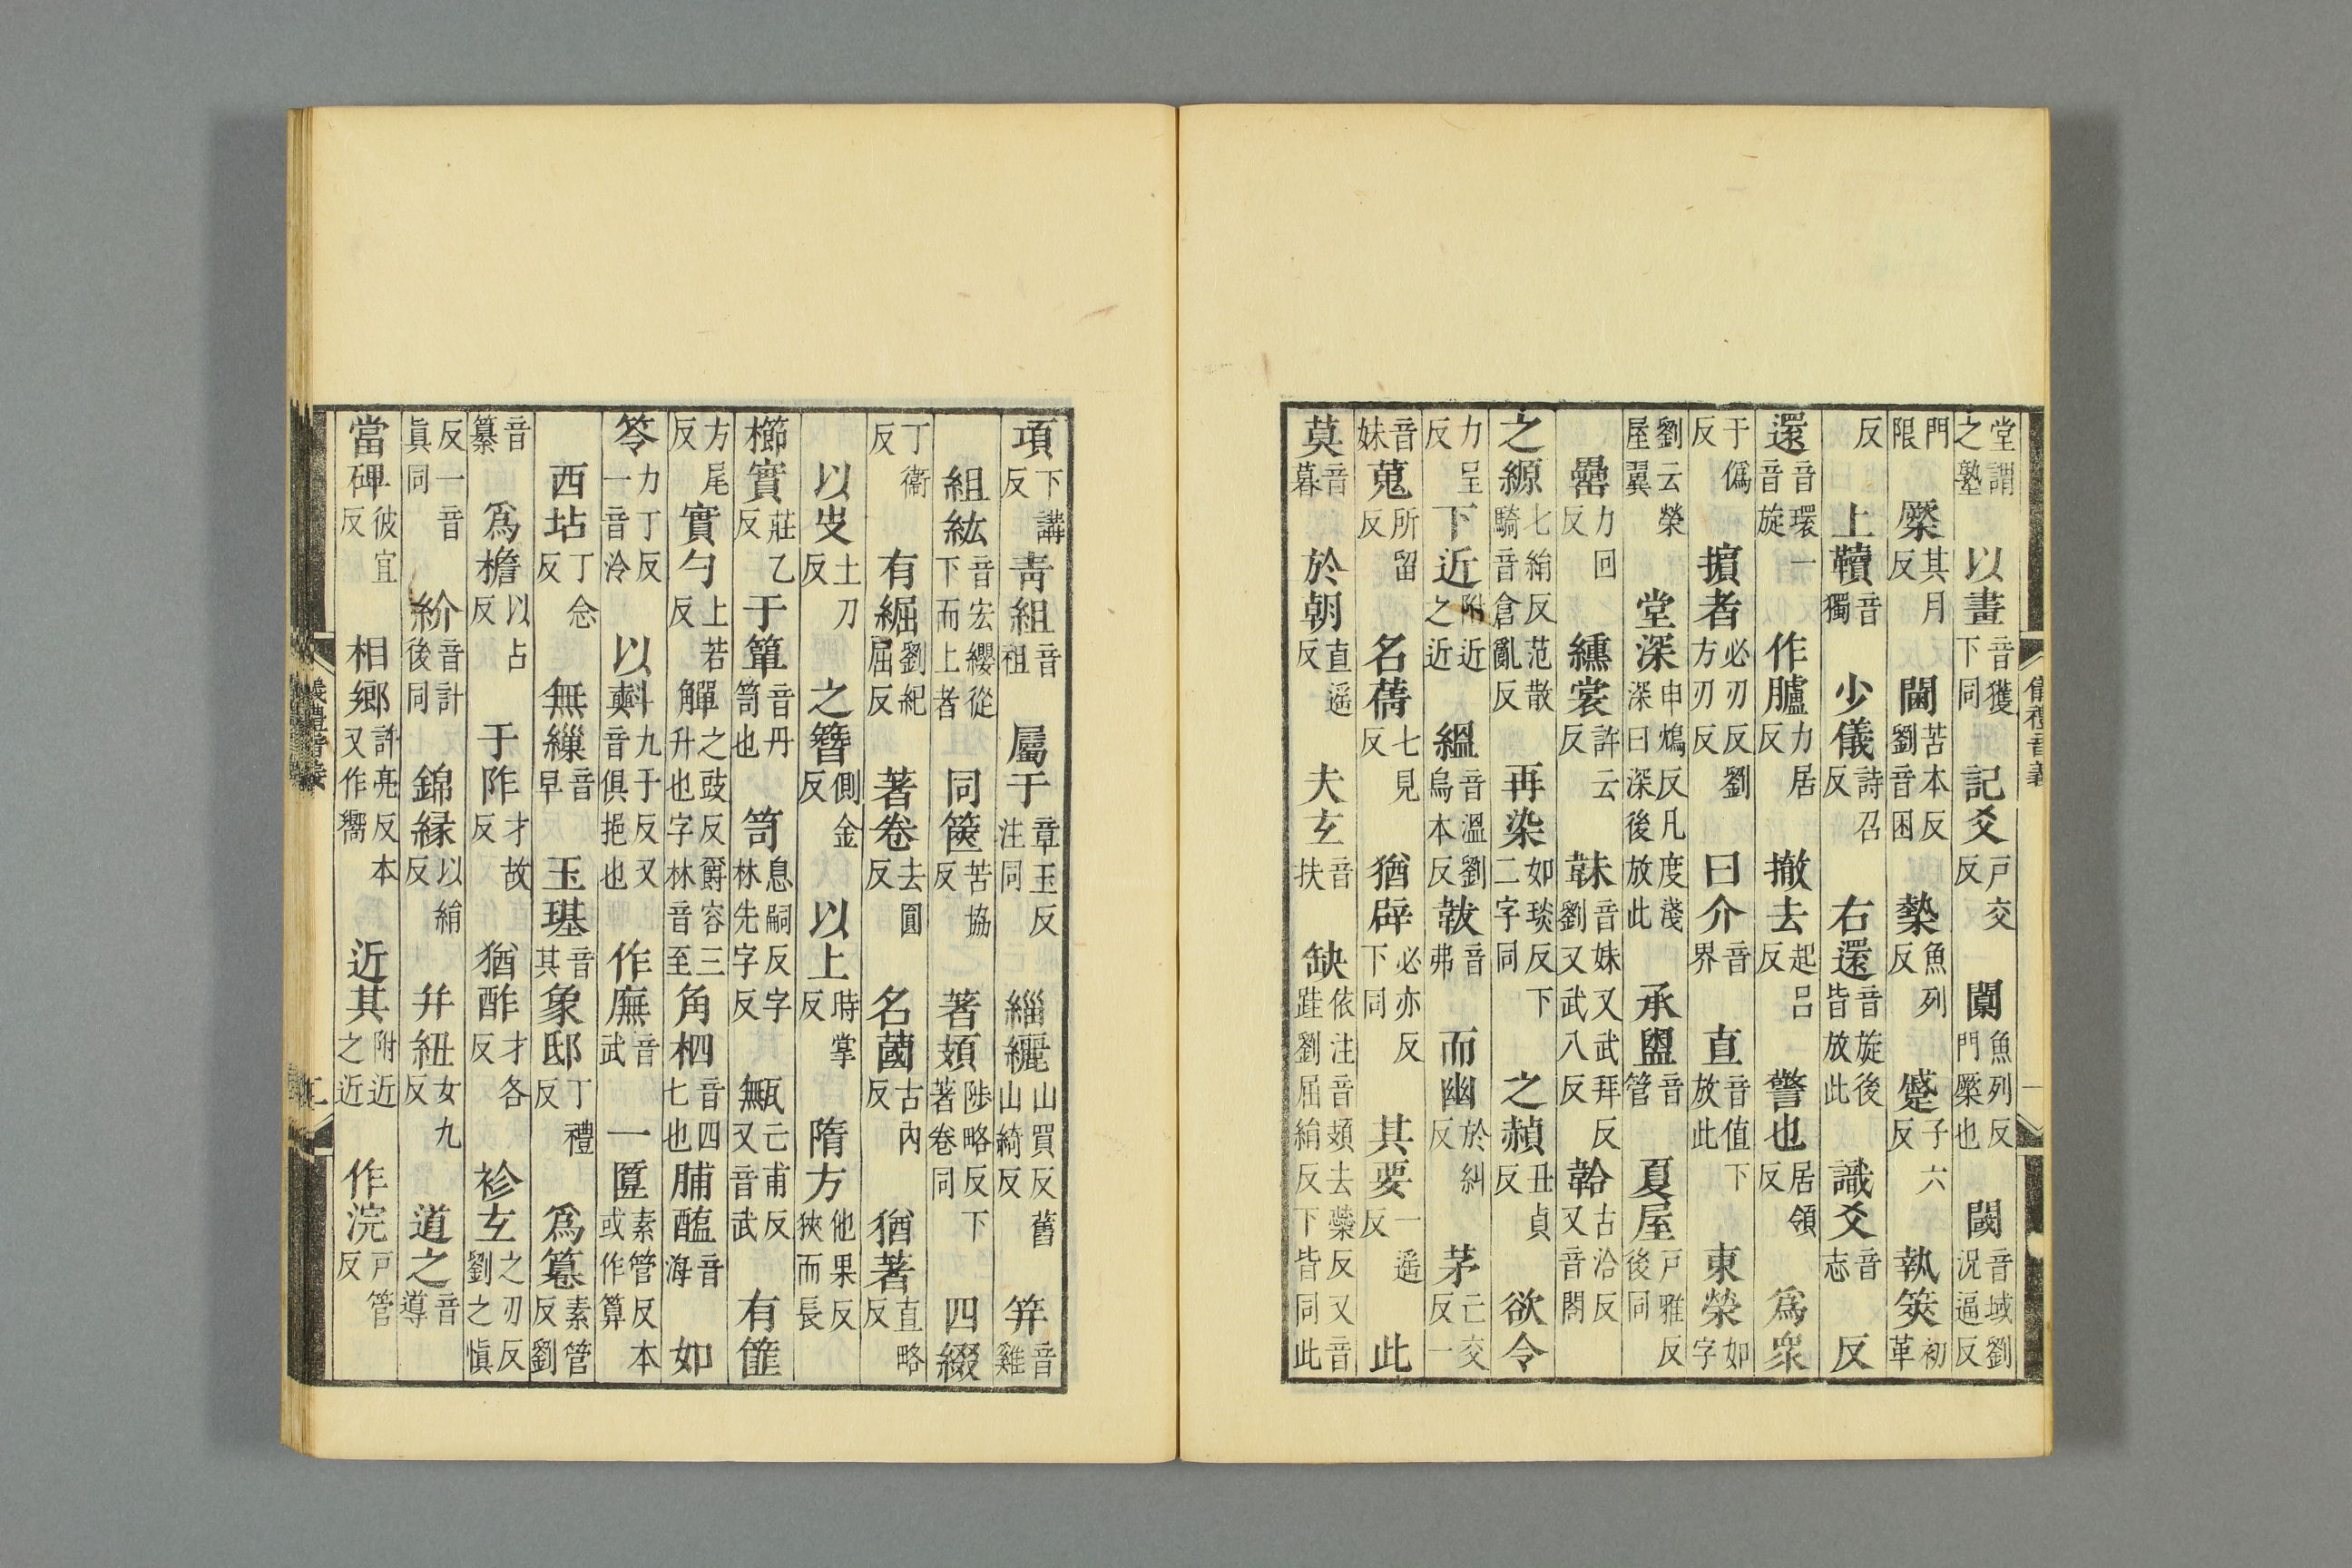 堂謂之塾　以畫音獲下同　記爻戶交反　闑魚列反門橜也　閾音域劉況逼反
門限　橜其月反　閫苦本反劉音困　槷魚列反　蹙子六反　執筴初革
反　上韇音獨　少儀詩召反　右還音旋後皆放此　識爻音志　反
還音環一音旋　作臚力居反　撤去起呂反　警也居領反　爲衆
于僞反　擯者必刃反劉方刃反　曰介音界　直音值下放此　東榮如字
劉云榮屋翼　堂深申鴆反凡度淺深曰深後放此　承盥音管　夏屋戶雅反後同
罍力回反　纁裳許云反　韎音妹又武拜反劉又武八反　韐古洽反又音閤
之縓七絹反范散騎音倉亂反　再染如琰反下二字同　之赬丑貞反　欲令
力呈反　下近附近之近　縕音溫劉烏本反　韍音弗　而幽於糾反　茅亡交反一
音妹　蒐所留反　名蒨七見反　猶辟必亦反下同　其要一遥反　此
莫音暮　於朝直遥反　夫玄音扶　缺依注音頍去蘂反又音跬劉屈絹反下皆同此
儀禮音義
項下講反　青組音祖　屬于章玉反注同　緇纚山買反舊山綺反　笄音雞
組紘音宏纓從下而上者　同篋苦協反　著頍陟略反下著卷同　四綴
丁衞反　有䋄劉紀屈反　著卷去圓反　名蔮古內反　猶著直略反
以𠬍土刀反　之簪側金反　以上時掌反　隋方他果反狹而長
櫛實莊乙反　于簞音丹笥也　笥息嗣反字林先字反　甒亡甫反又音武　有篚
方尾反　實勺上若反　觶之豉反爵容三升也字林音至　角柶音四七也　脯醢音海　如
笭力丁反一音泠　以㪺九于反又音俱挹也　作廡音武　一匴素管反本或作算
西坫丁念反　無繅音早　玉璂音其　象邸丁禮反　爲篹素管反劉
音纂　爲檐以占反　于阼才故反　猶酢才各反　袗玄之刃反劉之愼
反一音眞同　紒音計後同　錦緣以絹反　幷紐女九反　道之音導
當碑彼宜反　相鄉許亮反本又作嚮　近其附近之近　作浣戶管反